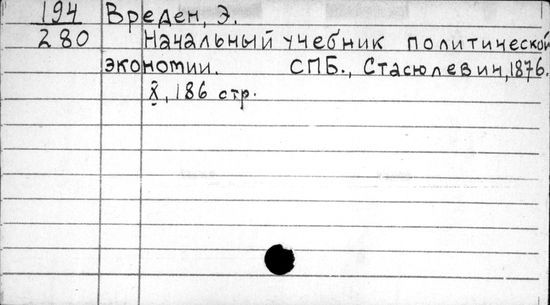 194 Вреден, Э.
280 Начальный учебник политической
экономии. СПБ., Стасюлевич, 1876.
X, 186 стр.